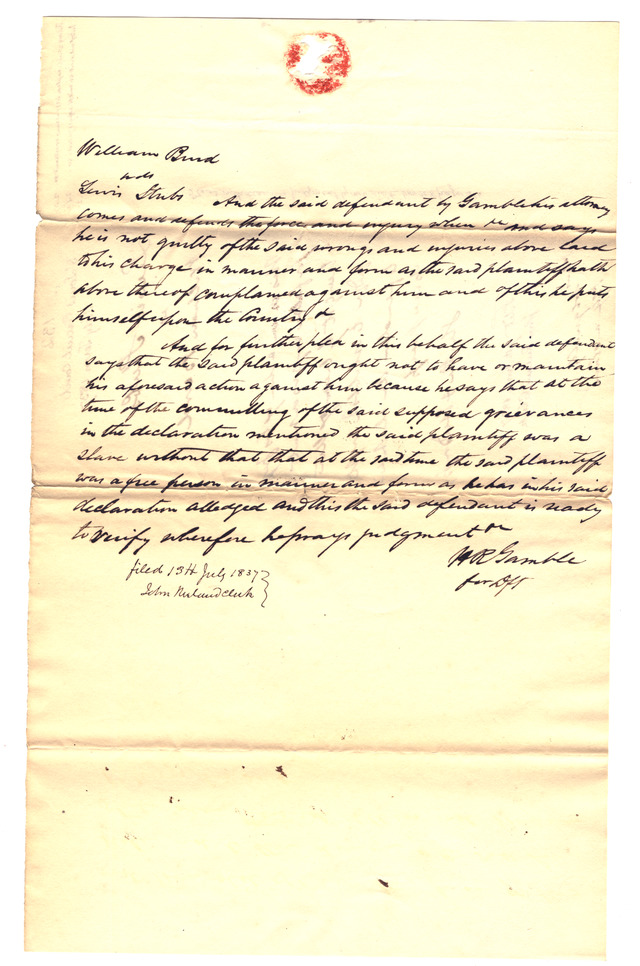 William Burd
ads
Lewis Stubs And the said defendant by Gamble his attorney
comes and defends the force and injury when &c and says
he is not guilty of the said wrongs and injuries above laid
to his charge in manner and form as the said plaintiff hath
above thereof complained against him and of this he puts
himself upon the Country &c
And for further plea in this behalf the said defendant
says that the said plaintiff ought not to have or maintain
his aforesaid action against him because he says that at the
time of the committing of the said supposed grievances
in the declaration mentioned the said plaintiff was a
slave without that that at the said time the said plaintiff
was a free person in manner and form as he has in his said
declaration alledged and this the said defendant is ready
to verify wherefore he prays judgment &c
H R Gamble
for Dft
filed 13th July 1837
John Ruland clerk